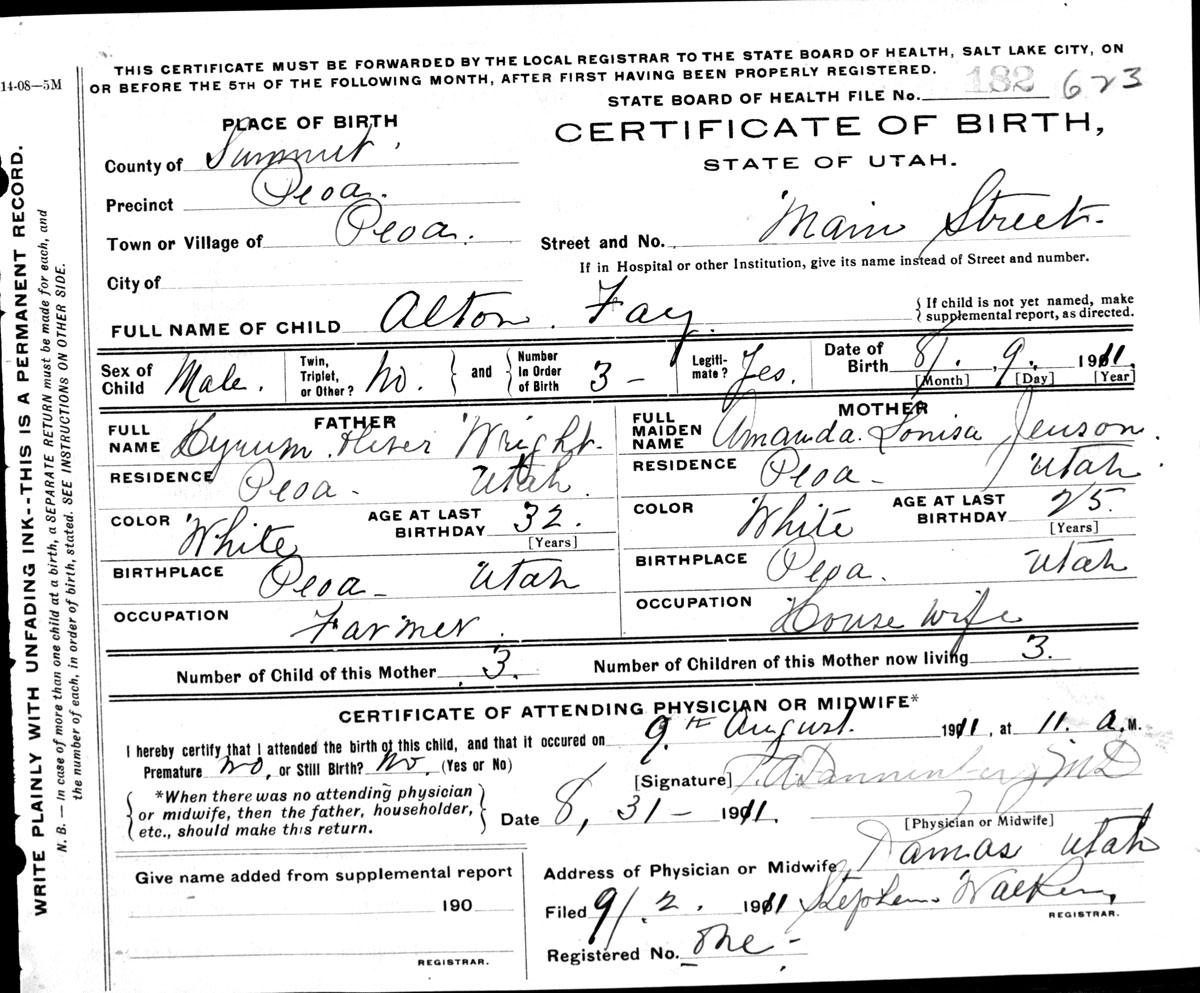 THIS CERTIFICATE MUST BE FORWARDED BY THE LOCAL REGISTRAR TO THE STATE BOARD OF HEALTH, SALT LAKE CITY, ON
OR BEFORE THE 5TH OF THE FOLLOWING MONTH, AFTER FIRST HAVING BEEN PROPERLY REGISTERED.
14-08—5M
STATE BOARD OF HEALTH FILE No. 182 623
WRITE PLAINLY WITH UNFADING INK--THIS IS A PERMANENT RECORD.
N. B. — In case of more than one child at a birth, a SEPARATE RETURN must be made for each, and
the number of each, in order of birth, stated. SEE INSTRUCTIONS ON OTHER SIDE.
PLACE OF BIRTH
CERTIFICATE OF BIRTH,
STATE OF UTAH.
County of Summit.
Precinct Peoa.
Town or Village of Peoa.
Street and No. Main Street.
If in Hospital or other Institution, give its name instead of Street and number.
City of
FULL NAME OF CHILD Alton Fay.
{ If child is not yet named, make
supplemental report, as directed.
Sex of Child Male.
Twin, Triplet, or Other? No.
and
Number In Order of Birth 3 -
Legiti-mate? Yes.
Date of Birth 8/. 9. 1911.
[Month] [Day] [Year]
FATHER
FULL NAME Hyrum Wright.
RESIDENCE Peoa - Utah.
COLOR White
AGE AT LAST BIRTHDAY 32.
[Years]
BIRTHPLACE Peoa - Utah
OCCUPATION Farmer.
MOTHER
FULL MAIDEN NAME Amanda Lonisa Jenson.
RESIDENCE Peoa - Utah.
COLOR White
AGE AT LAST BIRTHDAY 25.
[Years]
BIRTHPLACE Peoa. Utah
OCCUPATION House wife
Number of Child of this Mother 3.
Number of Children of this Mother now living 3.
CERTIFICATE OF ATTENDING PHYSICIAN OR MIDWIFE*
I hereby certify that I attended the birth of this child, and that it occured on 9th August. 1911, at 11. a. M.
Premature No, or Still Birth? No. (Yes or No)
[Signature] Dannenberg MD
[Physician or Midwife]
*When there was no attending physician
or midwife, then the father, householder,
etc., should make this return.
Date 8, 31 - 1911.
Address of Physician or Midwife Kamas Utah
Give name added from supplemental report
190
REGISTRAR.
Filed 9/. 2. 1911 Stephen Walker,
REGISTRAR.
Registered No. One -